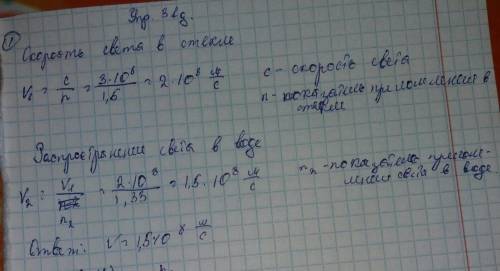 Упр. 3 вд.
① Скорость света в стекле
V₁ = c/n = 3·10⁸/1,5 = 2·10⁸ м/с
c - скорость света
n - показатель преломления в стекле
Распространение света в воде
V₂ = V₁/n₂ = 2·10⁸/1,33 = 1,5·10⁸ м/с
n₂ - показатель преломления света в воде
Ответ: V = 1,5·10⁸ м/с